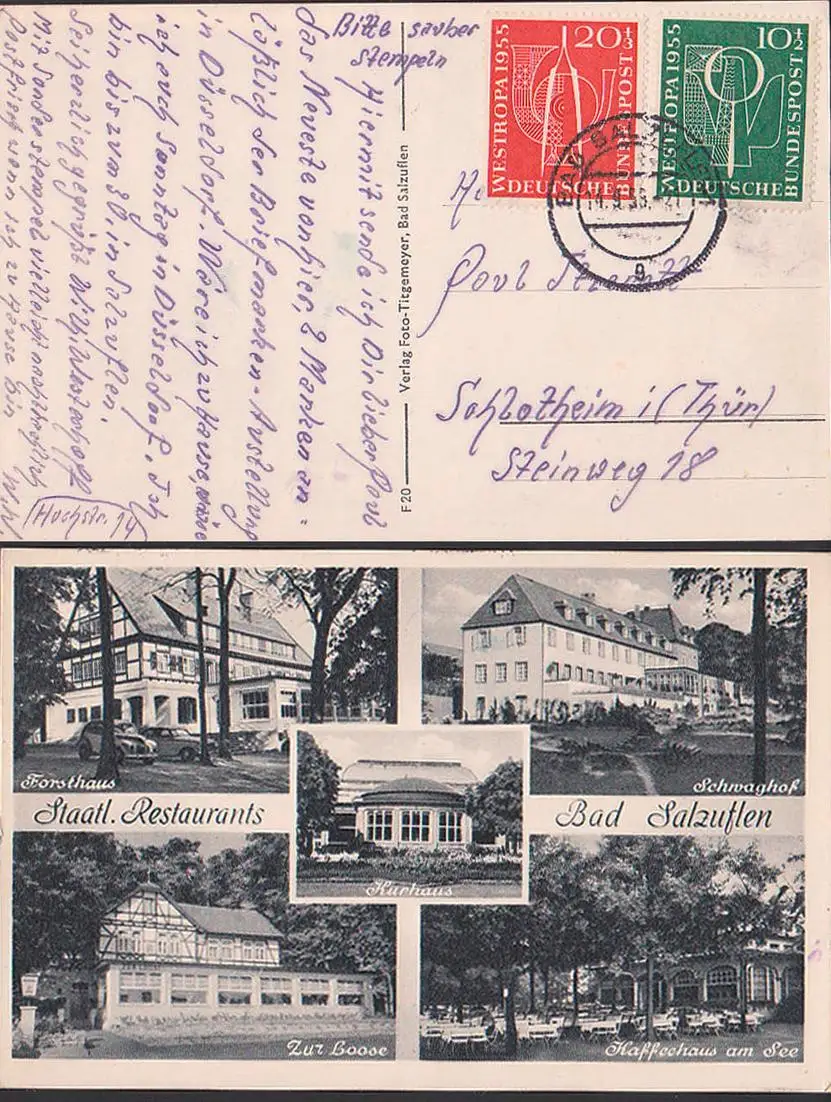 Bitte sauber
stempeln
Hiermit sende ich Dir lieber Paul
das Neueste von hier, 2 Marken an-
läßlich der Briefmarken-Austellung
in Düsseldorf. Wäre ich zu Hause, wäre
ich auch Sonntag in Düsseldorf. Ich
bin bis zum in Salzuflen.
Sei herzlich gegrüßt Willi Westerhoff
Mit Sonderstempel vielleicht
Postfrisch wenn ich zu Hause bin W.W.
Hochstr. 14
F 20 Verlag Foto-Titgemeyer, Bad Salzuflen
WESTROPA 1955
20+3
DEUTSCHE
BUNDESPOST
WESTROPA 1955
10+2
DEUTSCHE
BUNDESPOST
BAD SALZUFLEN
g
Paul
Schlotheim i (Thür)
Steinweg 18
Forsthaus
Schwaghof
Staatl. Restaurants
Bad Salzuflen
Kurhaus
Zur Loose
Kaffeehaus am See